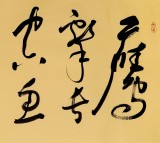 鷹
擊長
空魚